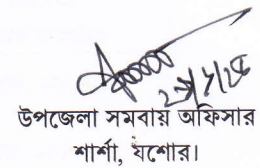 উপজেলা সমবায় অফিসার
শার্শা, যশোর।